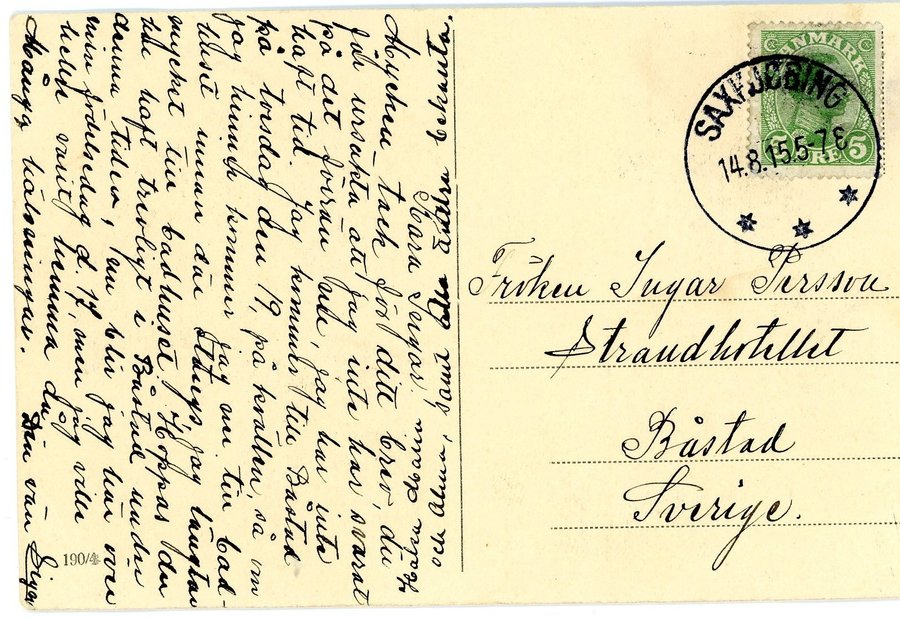 DANMARK
5 ØRE 5
SAXKJØBING
14.8.15 5-7 E
Fröken Ingar Persson
Strandhotellet
Båstad
Sverige.
Kära Ingar!
Mycken tack för ditt brev, du
får ursäkta att jag inte har svarat
på det förrän nu, jag har inte
haft tid. Jag kommer till Båstad
på torsdag den 19, på kvällen, så om
jag hinner kommer jag ner till bad-
huset innan du stänger, jag längtar
mycket till badhuset. Hoppas du
har haft trevligt i Båstad under
denna tiden, nu blir jag här över
min födelsedag d. 17, men jag ville
hellre varit hemma då.
Många hälsningar. Din vän
Hälsa
och Alma, samt alla andra bekanta.
190/4